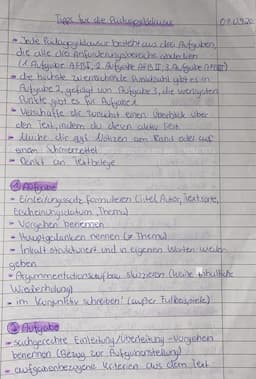 Tipps für die Pädagogikklausur 08.09.20
- Jede Pädagogikklausur besteht aus drei Aufgaben,
die alle drei Anforderungsbereiche abdecken
(1. Aufgabe AFB I, 2. Aufgabe AFB II, 3. Aufgabe AFB III)
- die höchste zu erreichende Punktzahl gibt es in
Aufgabe 2, gefolgt von Aufgabe 3, die wenigsten
Punkte gibt es für Aufgabe 1
- Verschaffe dir zunächst einen Überblick über
den Text, indem du diesen aktiv liest
- Mache dir ggf. Notizen am Rand oder auf
einem Schmierzettel
- Denkt an Textbelege
① Aufgabe
- Einleitungssatz formulieren (Titel, Autor, Textsorte,
Erscheinungsdatum, Thema)
- Vorgehen benennen
- Hauptgedanken nennen (≠ Thema)
- Inhalt strukturiert und in eigenen Worten wieder-
geben
- Argumentationsaufbau skizzieren (keine inhaltliche
Wiederholung)
- im Konjunktiv schreiben! (außer Fallbeispiele)
② Aufgabe
- sachgerechte Einleitung/Überleitung - Vorgehen
benennen (Bezug zur Aufgabenstellung)
- aufgabenbezogene Kriterien aus dem Text